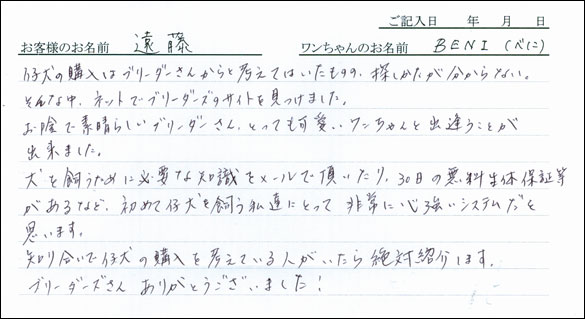 ご記入日 年 月 日
お客様のお名前 遠藤 ワンちゃんのお名前 BENI (べに)
仔犬の購入はブリーダーさんからと考えてはいたものの、探しかたが分からない。
そんな中、ネットでブリーダーズのサイトを見つけました。
お陰で素晴らしいブリーダーさん、とっても可愛いワンちゃんと出逢うことが
出来ました。
犬を飼うために必要な知識をメールで頂いたり、30日の無料生体保証等
があるなど、初めて仔犬を飼う私達にとって非常に心強いシステムだと
思います。
知り合いで仔犬の購入を考えている人がいたら絶対紹介します。
ブリーダーズさん ありがとうございました!